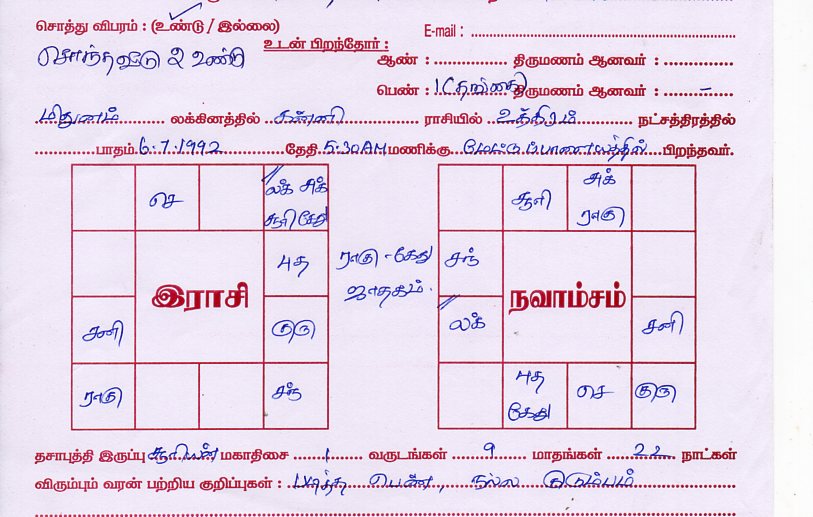 சொத்து விபரம் : (உண்டு / இல்லை)
E-mail :
உடன் பிறந்தோர் :
சொந்த வீடு 2 உண்டு
ஆண் : திருமணம் ஆனவர் :
பெண் : 1 (தங்கை) திருமணம் ஆனவர் : -
மிதுனம் லக்கினத்தில் கன்னி ராசியில் உத்திரம் நட்சத்திரத்தில்
பாதம் 6.7.1992 தேதி 5:30AM மணிக்கு மேட்டுப்பாளையத்தில் பிறந்தவர்.
செ
லக் சுக்
சூரி கேது
சூரி
சுக்
ராகு
புத
ராகு - கேது
ஜாதகம்.
சந்
இராசி
நவாம்சம்
சனி
குரு
லக்
சனி
ராகு
சந்
புத
கேது
செ
குரு
தசாபுத்தி இருப்பு சூரியன் மகாதிசை 1 வருடங்கள் 9 மாதங்கள் 22 நாட்கள்
விரும்பும் வரன் பற்றிய குறிப்புகள் : படித்த பெண், நல்ல குடும்பம்